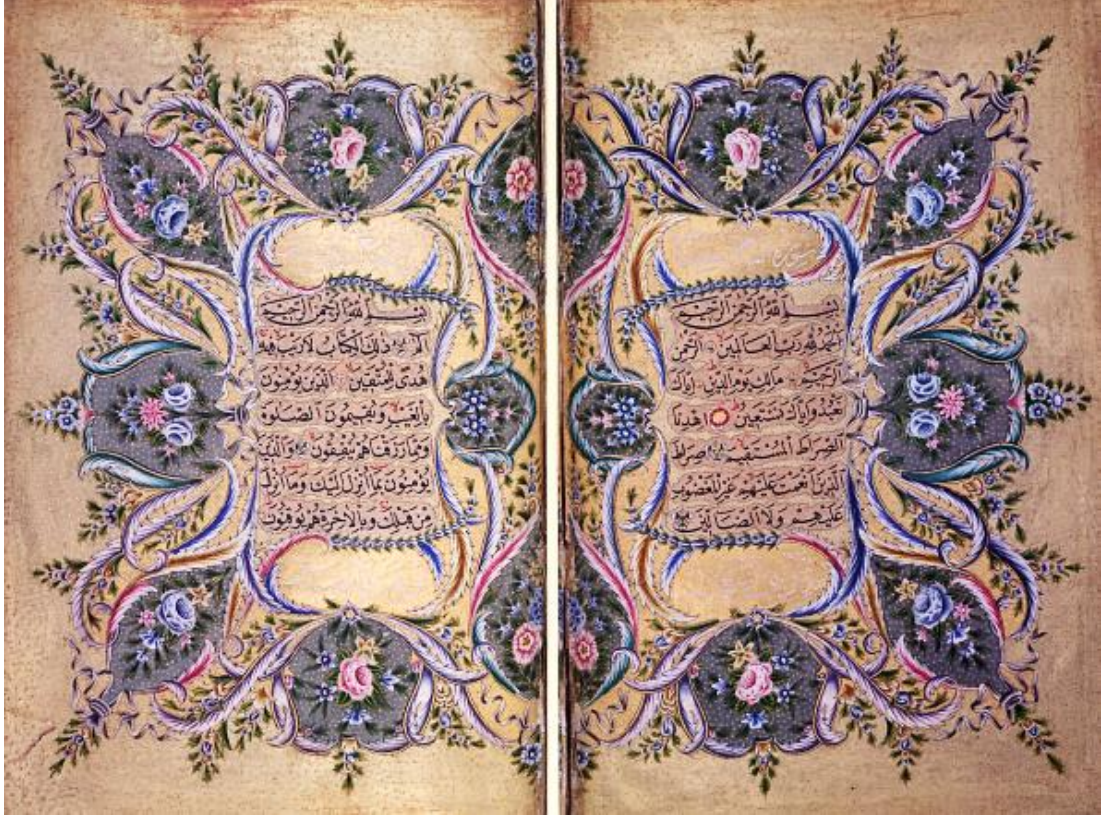 بسم الله الرحمن الرحيم
الحمد لله رب العالمين الرحمن
الرحيم مالك يوم الدين اياك
نعبد واياك نستعين اهدنا
الصراط المستقيم صراط
الذين انعمت عليهم غير المغضوب
عليهم ولا الضالين
بسم الله الرحمن الرحيم
الم ذلك الكتاب لا ريب فيه
هدى للمتقين الذين يؤمنون
بالغيب ويقيمون الصلوة
ومما رزقناهم ينفقون والذين
يؤمنون بما انزل اليك وما انزل
من قبلك وبالاخرة هم يوقنون